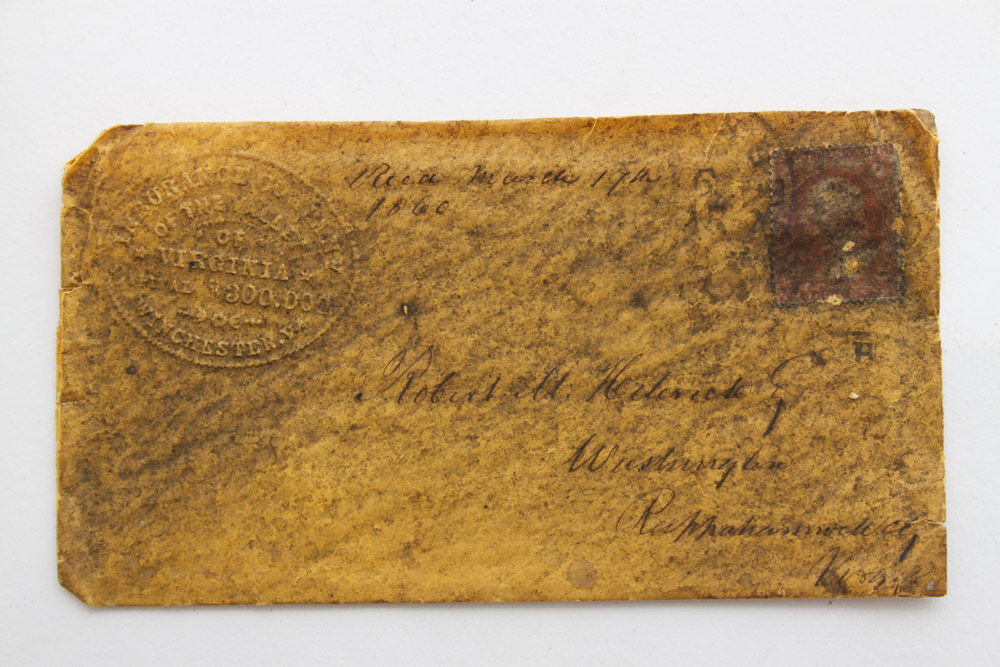 INSURANCE COMPANY
OF THE VALLEY
OF
VIRGINIA
CAPITAL $300,000
WINCHESTER, VA.
Recd March 17th
1860
Robert M. Heterick Esq
Washington
Rappahannock Co
Virga